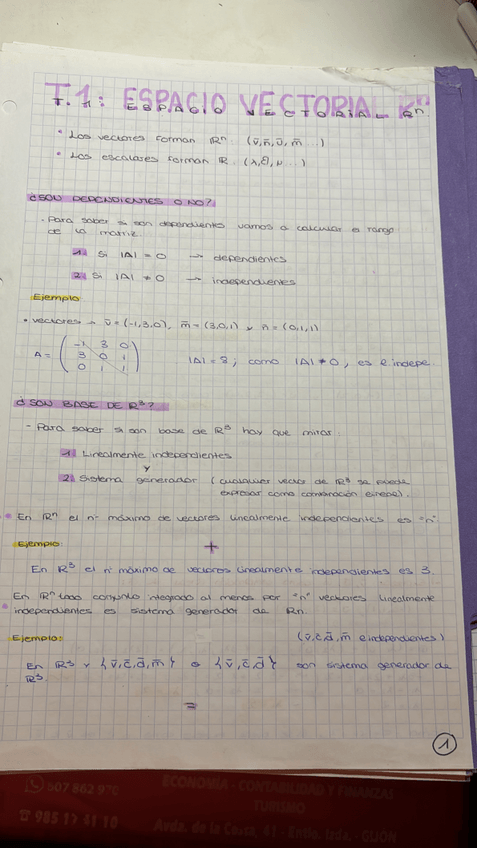 T.1: ESPACIO VECTORIAL Rⁿ
• Los vectores forman Rⁿ. (v̄, n̄, ū, m̄ ...)
• Los escalares forman R.
¿SON DEPENDIENTES O NO?
· Para saber si son dependientes vamos a calcular el rango
de la matriz.
1 Si |A| = 0 → dependientes
2 Si |A| ≠ 0 → independientes
Ejemplo
• vectores → v̄ = (-1,3,0), m̄ = (3,0,1) y n̄ = (0,1,1)
A = ( -1 3 0
3 0 1
0 1 1 )
|A| = 8, como |A| ≠ 0, es e indepe.
¿SON BASE DE R³?
- Para saber si son base de R³ hay que mirar:
1 Linealmente independientes
y
2 Sistema generador (cualquier vector de R³ se puede
expresar como combinación).
• En Rⁿ el nº máximo de vectores linealmente independientes es "n".
Ejemplo:
+
En R³ el nº máximo de vectores linealmente independientes es 3.
En Rⁿ todo conjunto integrado al menos por "n" vectores linealmente
• independientes es sistema generador de Rn.
Ejemplo: (v̄, c̄, d̄, m̄ e independientes)
En R³ y {v̄, c̄, d̄, m̄} o {v̄, c̄, d̄} son sistema generador de
R³.
=
1
607 862 970
ECONOMÍA - CONTABILIDAD Y FINANZAS
TURISMO
Avda. de la Costa, 41 - Entlo. Izda. - GIJÓN